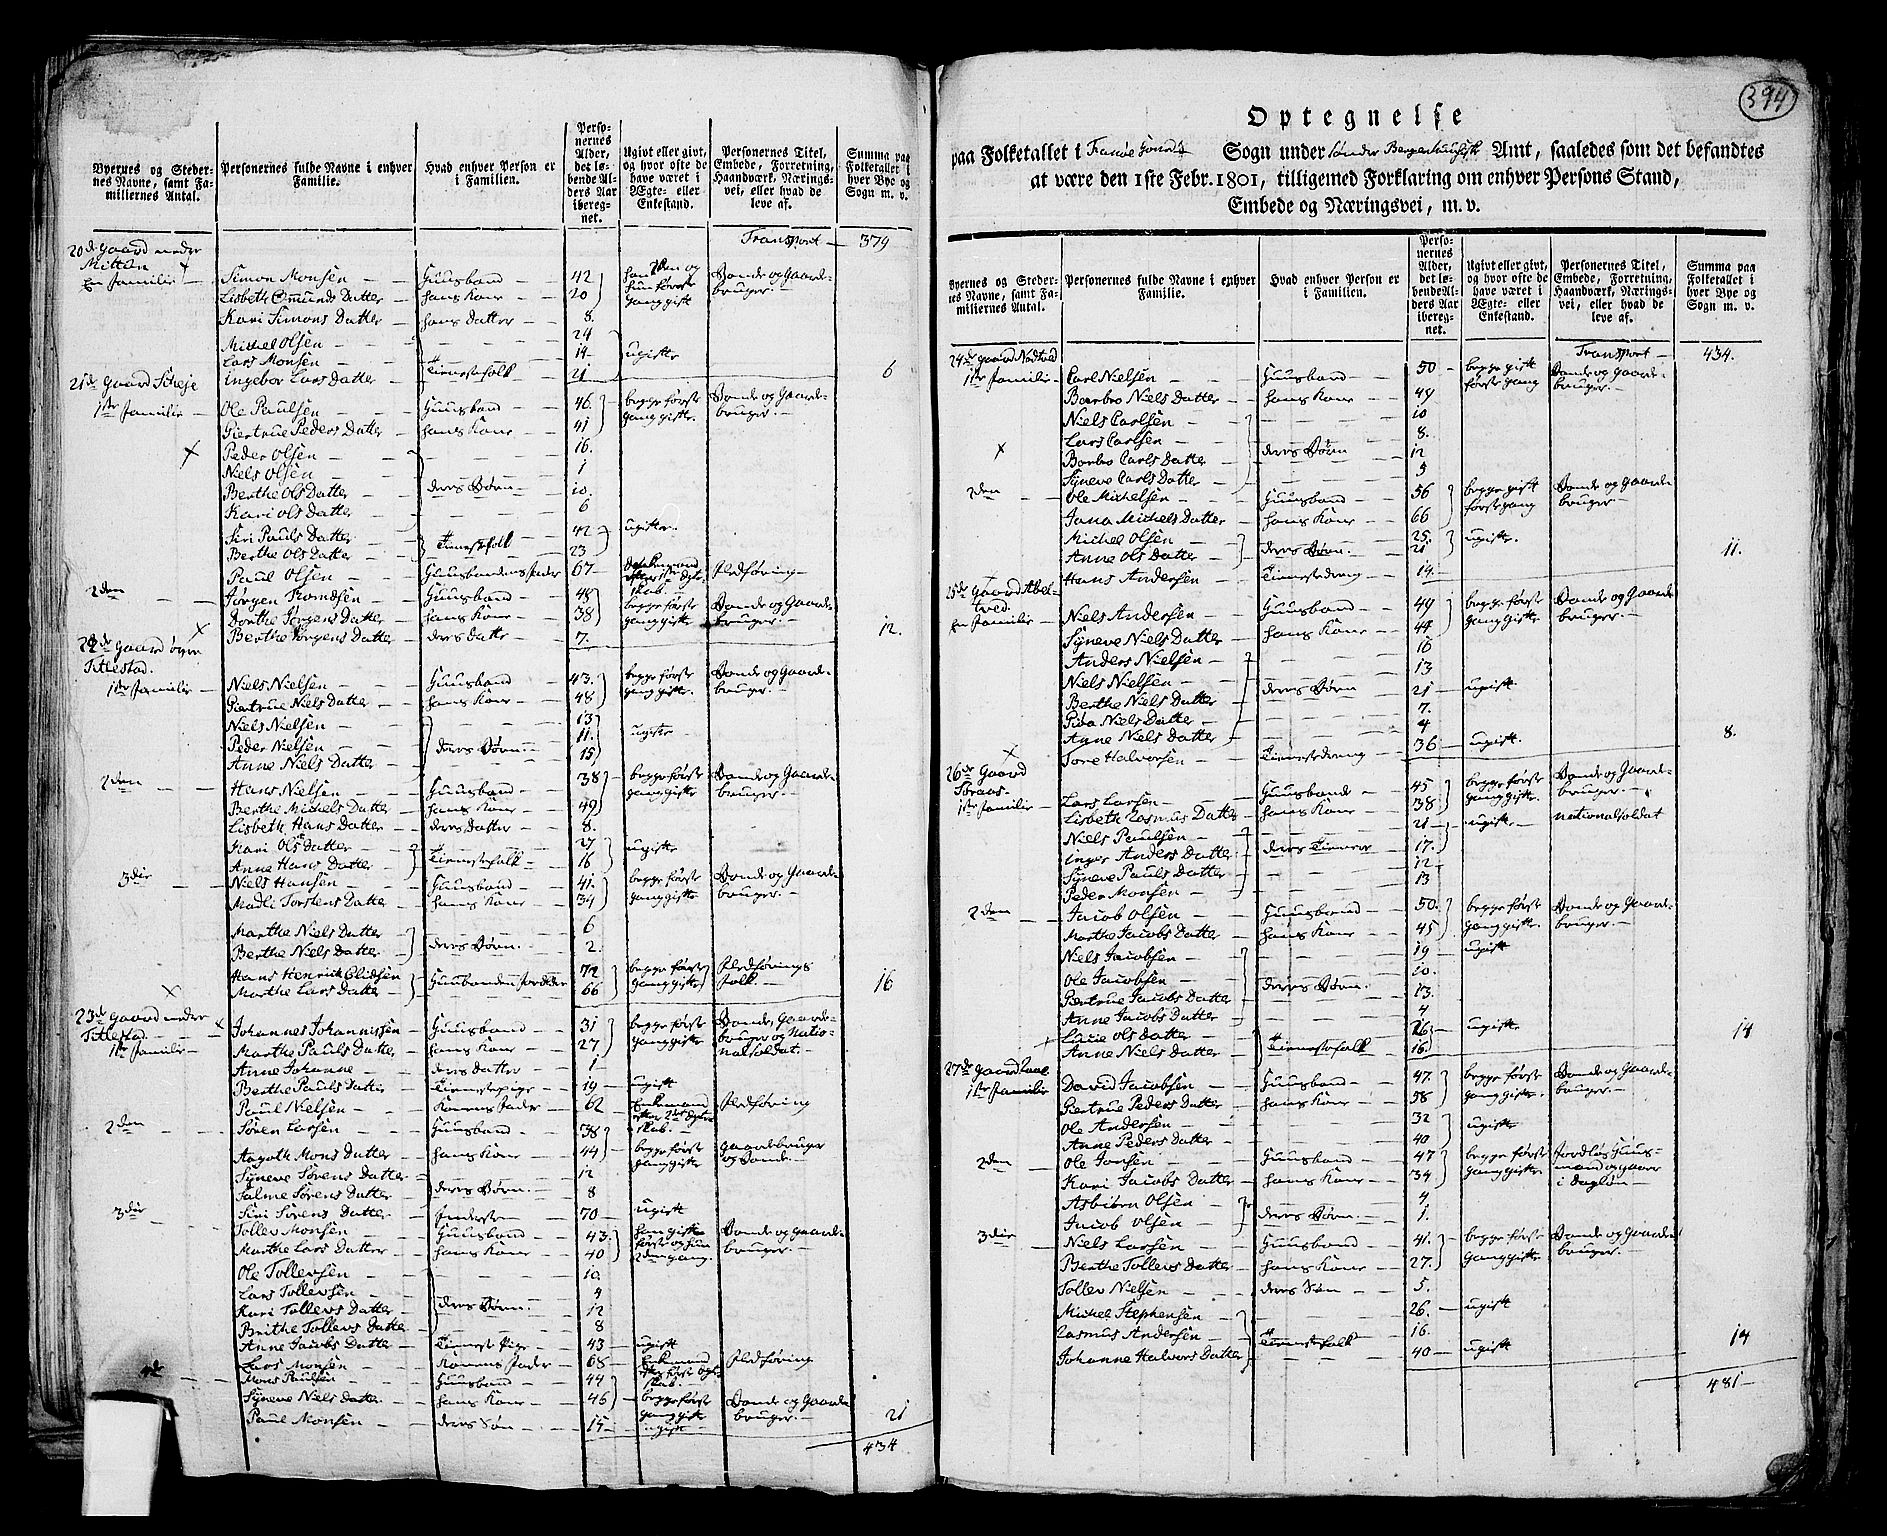 Byernes og Steder-
nes Navne, samt Fa-
miliernes Antal.
Personernes fulde Navne i enhver
Familie.
Hvad enhver Person er
i Familien.
Perso-
nernes
Alder,
det le-
bende Al-
ders Aar
iberegnet.
Ugivt eller givt,
og hvor ofte de
have været i
Ægte- eller
Enkestand.
Personernes Titel,
Embede, Forretning,
Haandværk, Nærings-
vei, eller hvad de
leve af.
Summa paa
Folketallet i
hver Bye og
Sogn m. v.
Transport — 379
20de Gaard nedre
Mitun
En familie — Simon Monsen — Huusbond — 42
Lisbeth Omunds Datter hans Kone — 20
Bonde og Gaard-
bruger.
Kari Simons Datter — hans Datter — 8.
Michel Olsen — 24
Lars Monsen — 14 — ugifte
Ingebor Lars Datter — Tienestefolk — 21 6
21de Gaard Scheje
1ste familie — Ole Paulsen — Huusbond — 46. begge første Bonde og Gaard-
Giertrue Peders Datter — hans Kone — 41 gang gifte bruger. —
Peder Olsen — 16.
Niels Olsen — 1
Berthe Ols Datter — deres Børn — 10.
Kari Ols Datter — 6
Siri Pauls Datter — 42 ugifte.
Berthe Ols Datter — Tienestefolk — 23
Paul Olsen — Huusbondens fader 67 — Enkemand Fledføring —
2den — Jørgen Romdsen — Huusbond — 48
Dorthe Jørgens Datter — hans Kone — 38 begge første Bonde og Gaard-
Berthe Jørgens Datter — deres datter — 7. gang gifte bruger. 12.
22de Gaard øvre
Titlestad.
1ste familie — Niels Nielsen — Huusbond — 43. begge første Bonde og Gaard-
Giertrue Niels Datter — hans Kone — 48 gang gifte. bruger. —
Niels Nielsen — 13
Peder Nielsen — 11. ugifte —
Anne Niels Datter — deres Børn. — 15
2den — Hans Nielsen — Huusbond — 38 begge første Bonde og Gaard-
Berthe Michels Datter — hans Kone — 49 gang gifte bruger. —
Lisbeth Hans Datter — deres datter — 8.
Kari Ols Datter — 27 ugifte
Anne Hans Datter — Tienestefolk — 16
3die — Niels Hansen — Huusbond — 41. begge første Bonde og Gaard-
Madli Torstens Datter — hans Kone — 34 gang gifte bruger. —
Marthe Niels Datter 6
Berthe Niels Datter — deres Børn. — 2.
Hans Henrich 72 begge første Fledførings
Marthe Lars Datter — 66 gang gifte folk. — 16
23de Gaard nedre
Titlestad.
1ste familie — Johannes Johannissen — Huusbond — 31 begge første Bonde, Gaard-
Marthe Pauls Datter — hans Kone — 27 gang gifte bruger og Natio-
nalsoldat. —
Anne Johanne — deres datter — 1
Berthe Pauls Datter — Tienestepige — 19 — ugift
Paul Nielsen — Konens fader — 62 Enkemand Fledføring
2den — Søren Larsen — Huusbond — 38
Aagoth Mons Datter — hans Kone — 44 begge første Gaardebruger
Syneve Sørens Datter — 12 gang gifte og Bonde. —
Salme Sørens Datter — deres Børn. — 8
Siri Sørens Datter — 70 — ugift
3die — Tollev Monsen — Huusbond — 43. han gift Bonde og Gaard-
Marthe Lars Datter — hans Kone — 40 første og hun bruger. —
2den gang.
Ole Tollevsen — 10.
Lars Tollevsen — 4
Kari Tollevs Datter — deres Børn. — 12
Brithe Tollevs Datter — 8
Anne Jacobs Datter — Tieneste Pige — 43 — ugift
Lars Monsen — Konens fader — 68 Enkemand Fledføring
4de — Mons Paulsen — Huusbond — 44
Syneve Niels Datter — hans Kone — 46 begge første Bonde og Gaard-
Paul Monsen — deres Søn. — 15 — ugift bruger. — 21
434
394
Optegnelse
paa Folketallet i Fanøe Sogn Sogn under Sønder Bergenhuusisk Amt, saaledes som det befandtes
at være den 1ste Febr. 1801, tilligemed Forklaring om enhver Persons Stand,
Embede og Næringsvei, m. v.
Byernes og Steder-
nes Navne, samt Fa-
miliernes Antal.
Personernes fulde Navne i enhver
Familie.
Hvad enhver Person er
i Familien.
Perso-
nernes
Alder,
det le-
bende Al-
ders Aar
ibereg-
net.
Ugivt eller givt,
og hvor ofte de
have været i
Ægte- eller
Enkestand.
Personernes Titel,
Embede, Forretning,
Haandværk, Nærings-
vei, eller hvad de
leve af.
Summa paa
Folketallet i
hver Bye og
Sogn m. v.
24de Gaard Nodtved Transport — 434.
1ste familie — Carl Nielsen — Huusbond — 50 — begge gift Bonde og Gaard-
Barbro Niels Datter — hans Kone — 49 første gang bruger. —
Niels Carlsen — 10
Lars Carlsen — 8.
Barbro Carls Datter — deres Børn 12
Syneve Carls Datter — 5
2den — Ole Michelsen — Huusbond — 56 begge gift Bonde og Gaard-
Jana Michels Datter — hans Kone — 66 første gang bruger —
Michel Olsen — 25. ugift.
Anne Ols Datter — deres Børn. — 21
Hans Andersen — Tienestedreng — 14. 11.
25de Gaard Abel-
tved.
En familie — Niels Andersen — Huusbond — 49 begge første Bonde og Gaard-
Syneve Niels Datter — hans Kone — 44 gang gifte bruger. —
Anders Nielsen — 16
Niels Nielsen — 13
Berthe Niels Datter — deres Børn 21 — ugift
Niels Datter — 7.
Anne Niels Datter — 4
Tore Halvorsen — Tienestedreng — 36 — ugift. 8.
26de Gaard
Straas.
1ste familie — Lars Larsen — Huusbond — 45 begge første Bonde og Gaard-
Lisbeth Rasmus Datter — hans Kone — 38 gang gifte. bruger. —
Niels Paulsen — 21 — ugift — nationalsoldat
Inger Anders Datter — deres Tienere — 17.
Syneve Pauls Datter — 12
Peder Monsen — 13
2den — Jacob Olsen — Huusbond — 50. begge første Bonde og Gaard-
Marthe Jacobs Datter — hans Kone — 45 gang gifte. bruger. —
Niels Jacobsen — 19 — ugift
Ole Jacobsen — 10.
Giertrue Jacobs Datter — deres Børn. 13.
Anne Jacobs Datter — 4
Ols Datter — 26 — ugifte 14
Anne Niels Datter — Tienestefolk — 16.
27de Gaard
1ste familie — David Jacobsen — Huusbond — 47. begge første Bonde og Gaard-
Giertrue Peders Datter — hans Kone — 58 gang gifte. bruger. —
Ole Andersen — 32 ugifte
Anne Peders Datter — 40
2den — Ole Jonsen — Huusbond — 47 begge første Jordløs Huus-
Kari Jacobs Datter — hans Kone — 34 gang gifte mand og gaaer
i Dagløn —
Asbiørn Olsen — 4
Jacob Olsen — deres Børn. — 1.
3die — Niels Larsen — Huusbond — 41. begge første Bonde og Gaard-
Berthe Tollevs Datter — hans Kone — 27. gang gifte bruger. —
Tollev Nielsen — deres Søn — 5.
Michel Stephensen — 26. — ugift
Rasmus Andersen — Tienestefolk — 16.
Johanne Halvors Datter — 40 — ugift 14
481 —